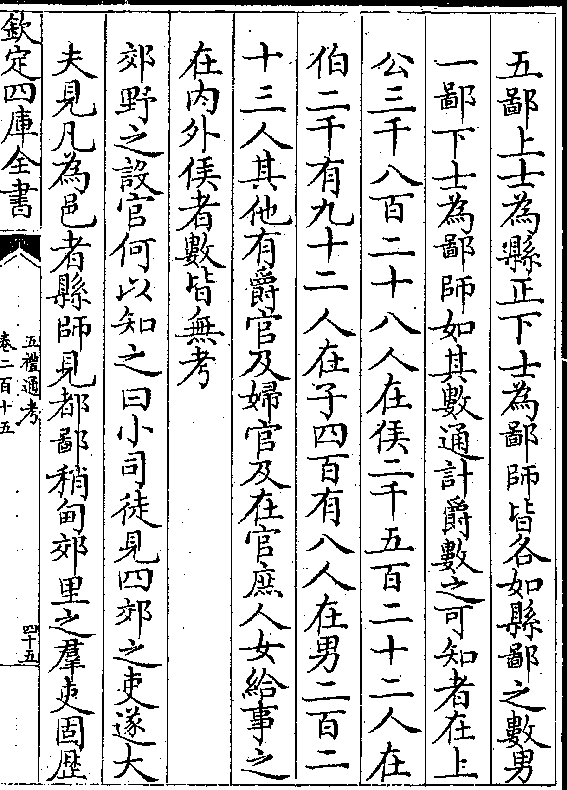 五鄙上士為縣正下士為鄙師皆各如縣鄙之數男
一鄙下士為鄙師如其數通計爵數之可知者在上
公三千八百二十八人在侯二千五百二十二人在
伯二千有九十二人在子四百有八人在男二百二
十三人其他有爵官及婦官及在官庶人女給事之
在内外侯者數皆無考
郊野之設官何以知之曰小司徒見四郊之吏遂大
夫見凡為邑者縣師見都鄙稍甸郊里之羣吏固歴
欽定四庫全書
五禮通考
卷二百十五
四十五